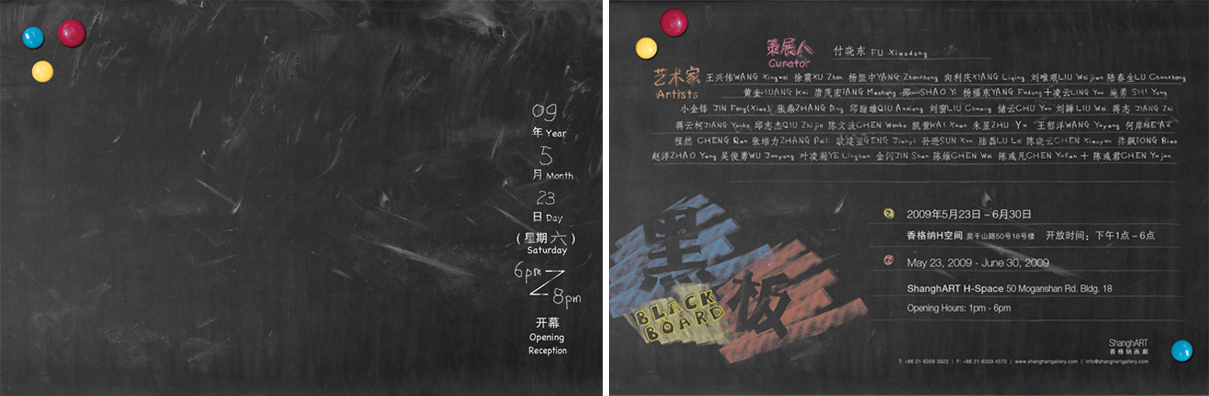 09
年 Year
5
月 Month
23
日 Day
(星期六)
Saturday
6pm
8pm
开幕
Opening
Reception
策展人
Curator
付晓东 FU Xiaodong
艺术家
Artists
王兴伟WANG Xingwei 徐震XU Zhen 杨振中YANG Zhenzhong 向利庆XIANG Liqing 刘唯艰LIU Weijian 陆春生LU Chunsheng
黄奎HUANG Kui 唐茂宏TANG Maohong 邵一SHAO Yi 杨福东YANG Fudong+凌云LING Yun 施勇 SHI Yong
小金锋 JIN Feng(Xiao) 张鼎ZHANG Ding 邱黯雄QIU Anxiong 刘窗LIU Chuang 储云CHU Yun 刘韡LIU Wei 蒋志 JIANG Zhi
蒋云柯JIANG Yunke 邱志杰QIU Zhijie 陈文波CHEN Wenbo 凯萱KAI Xuan 朱昱ZHU Yu 王郁洋WANG Yuyang 何岸HE An
程然 CHENG Ran 张培力ZHANG Peili 耿建翌GENG Jianyi 孙逊SUN Xun 陆磊LU Lei 陈晓云CHEN Xiaoyun 佟飚TONG Biao
赵洋ZHAO Yang 吴俊勇WU Junyong 叶凌瀚YE Linghan 金闪JIN Shan 陈维CHEN Wei 陈彧凡CHEN Yufan + 陈彧君CHEN Yujun
黑板
BLACK
BOARD
2009年5月23日 – 6月30日
香格纳H空间 莫干山路50号18号楼 开放时间：下午1点 – 6点
May 23, 2009 - June 30, 2009
ShanghART H-Space 50 Moganshan Rd. Bldg. 18
Opening Hours: 1pm - 6pm
ShanghART
香格纳画廊
T: +86 21-6359 3923 | F: +86 21-6359 4570 | www.shanghartgallery.com | info@shanghartgallery.com